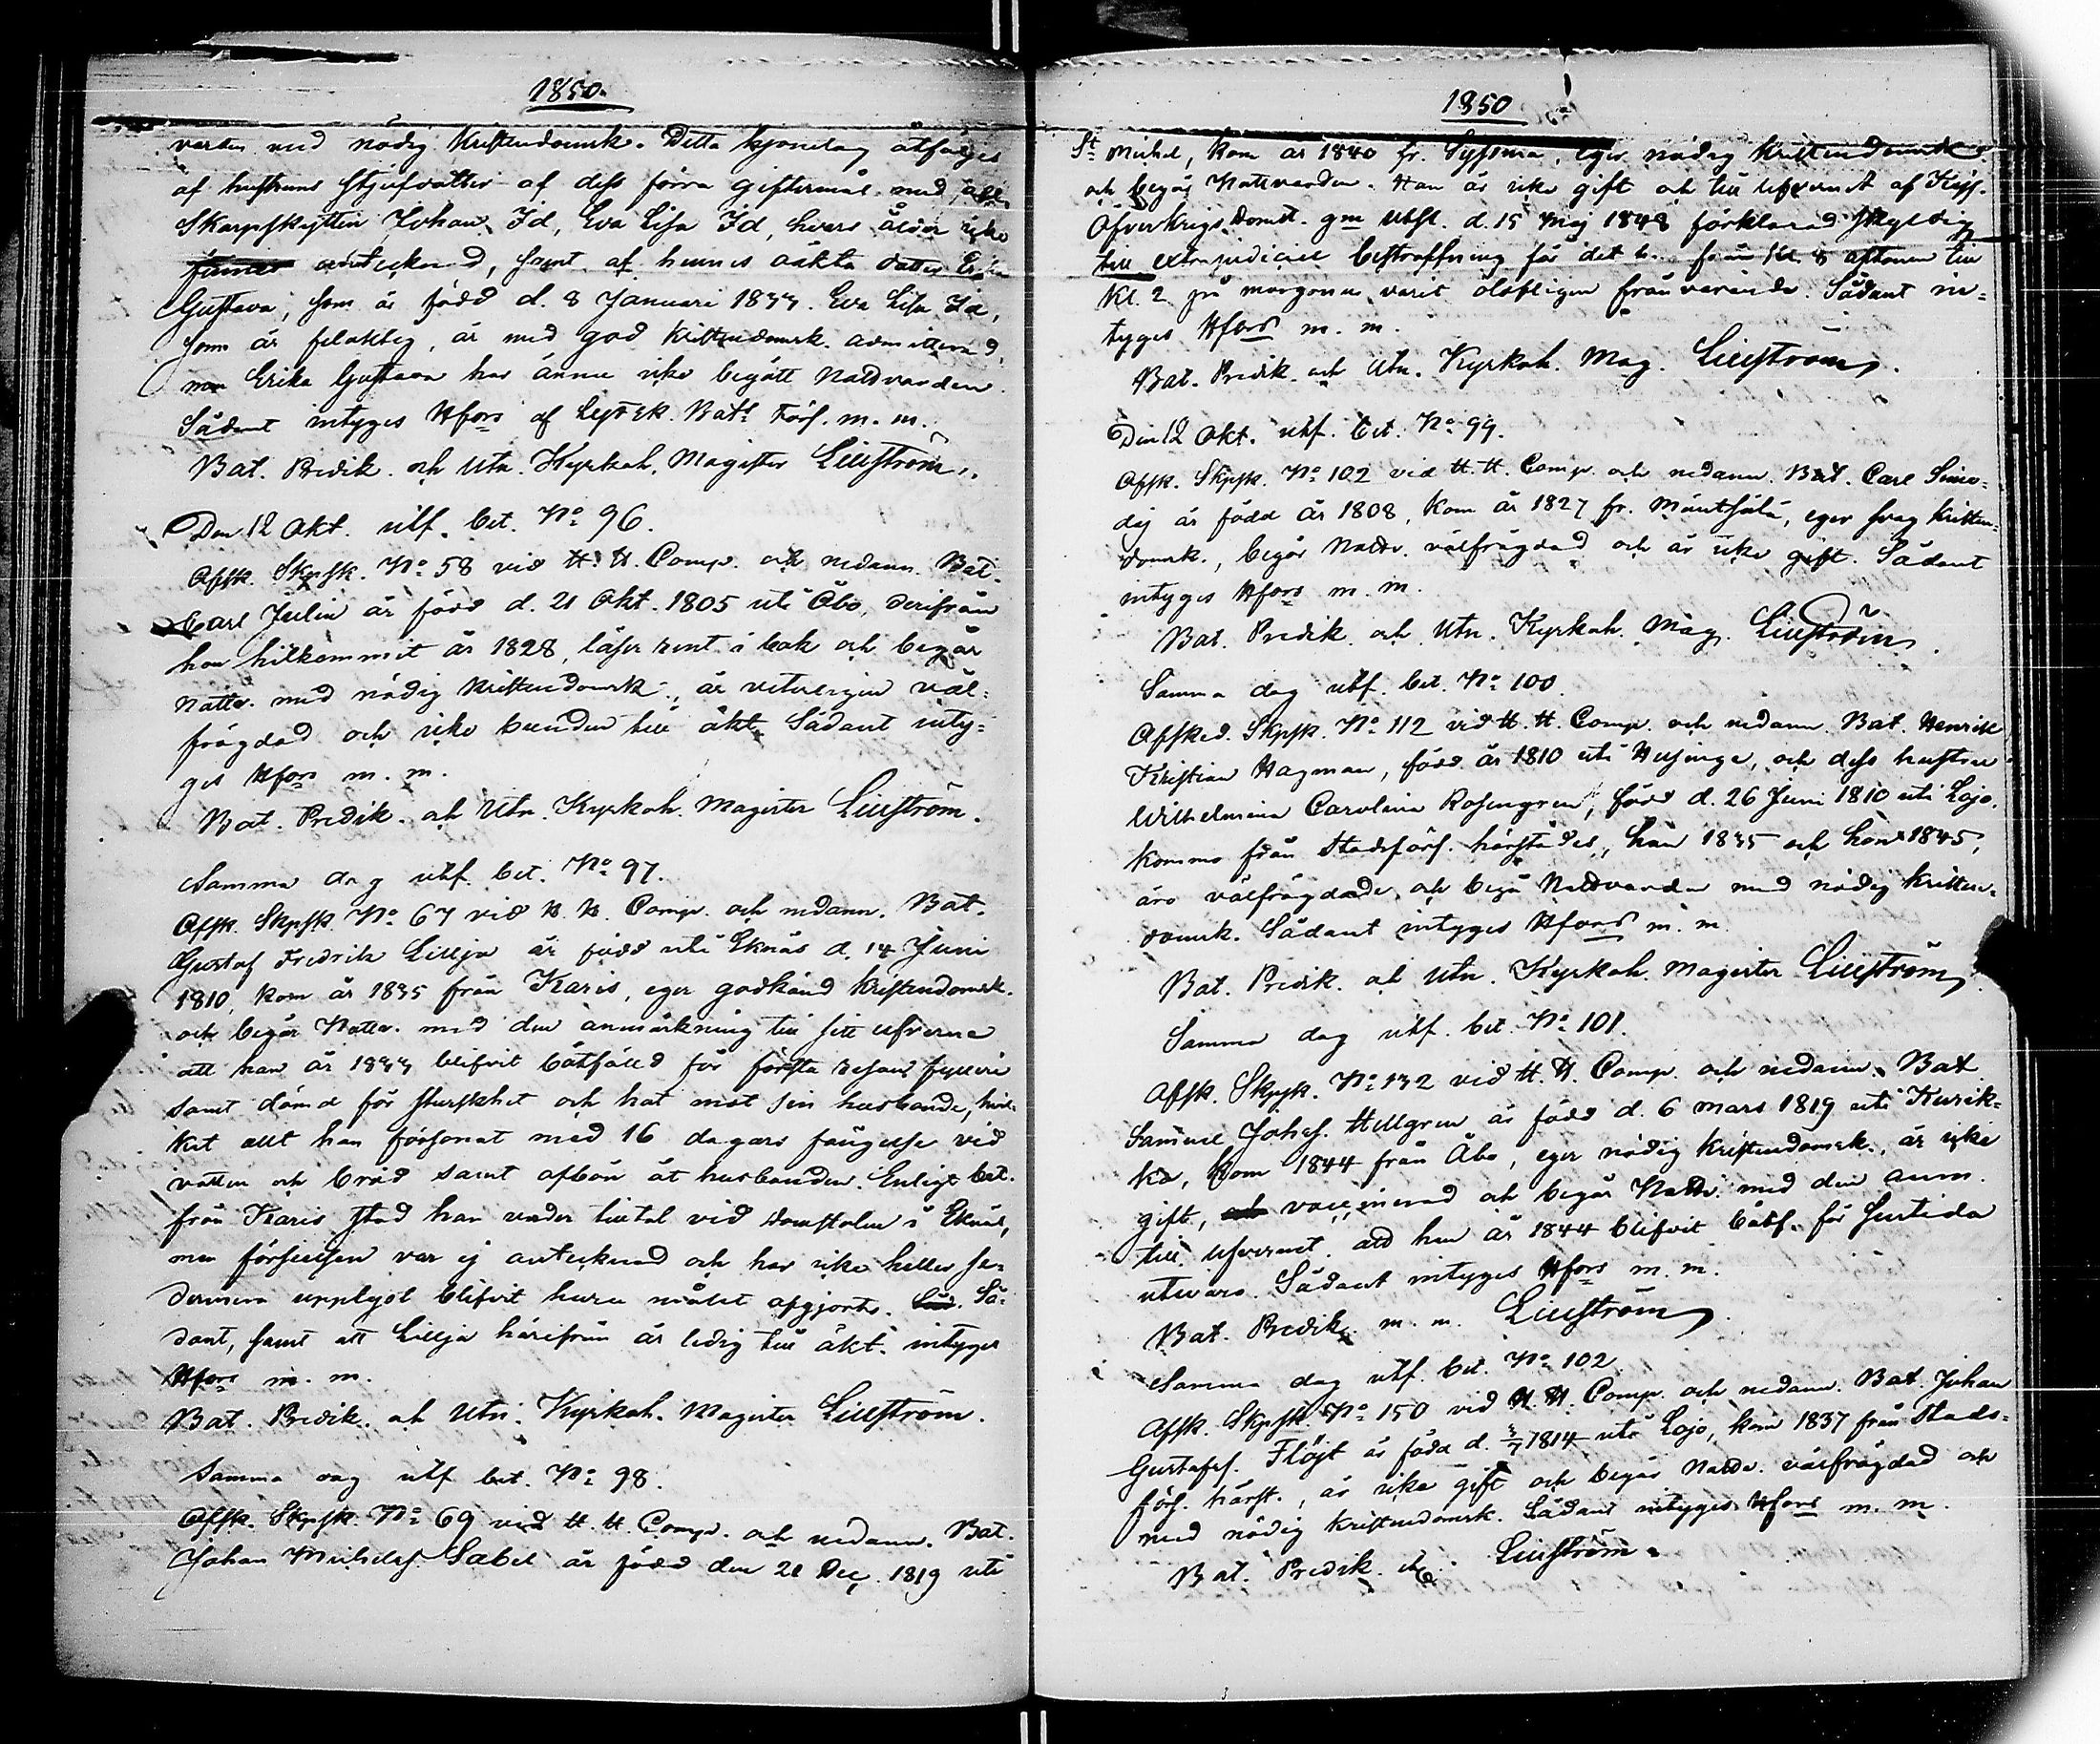 1850.
varden med nödig Kristendomsk. Detta hjonelag åtföljes
af hustruns styfdotter af dess förra giftermål med afl.
Skarpskytten Johan Id, Eva Lisa Id, hvars ålder icke
finnes antecknad, samt af hennes äkta dotter Erika
Gustava, som är född d. 8 Januari 1833. Eva Lisa Id,
som är felaktig, är med god Kristendomsk. admitterad,
men Erika Gustava har ännu icke begått Nattvarden.
Sådant intyges Hfors af Lifsk. Batl Förs. m. m.
Bat. Predik. och Utn. Kyrkoh. Magister Liljeström.
Den 12 Okt. utf. bet. No 96.
Afsk. Skpsk. No 58 vid H. H. Comp. och nedann. Bat.
Carl Julin är född d. 21 Okt. 1805 uti Åbo, derifrån
han hitkommit år 1828, läser rent i bok och begår
Nattv. med nödig Kristendomsk., är veterligen väl-
frägdad och icke bunden till äkt. Sådant inty-
ges Hfors m. m.
Bat. Predik. och Utn. Kyrkoh. Magister Liljeström.
Samma dag utf. bet. No 97.
Afsk. Skpsk. No 67 vid H. H. Comp. och nedann. Bat.
Gustaf Fredrik Lillja är född uti Eknäs d. 14 Juni
1810, kom år 1835 från Karis, eger godkänd Kristendomsk.
och begår Nattv. med den anmärkning till sitt lefverne
att han år 1833 blifvit bötfälld för första resans fylleri
samt dömd för sturskhet och hot mot sin husbonde, hvil-
ket allt han försonat med 16 dagars fängelse vid
vatten och bröd samt afbön åt husbonden. Enligt bet.
från Karis stod han under tilltal vid Domstolen i Eknäs,
men förseelsen var ej antecknad och har icke heller se-
dermera upplyst blifvit huru målet afgjorts. Så-
dant, samt att Lillja härifrån är ledig till äkt. intyges
Hfors m. m.
Bat. Predik. och Utn. Kyrkoh. Magister Liljeström.
Samma dag utf. bet. No 98.
Afsk. Skpsk. No 69 vid H. H. Comp. och nedann. Bat.
Johan Michelss. Sabel är född den 21 Dec. 1819 uti
1850
St Michel, kom år 1840 fr. Syssmä, eger nödig Kristendomsk.
och begår Nattvarden. Han är icke gift och till lefvernet af Kejs.
Öfver Krigs Domst. gm Utsl. d. 15 Maj 1848 förklarad skyldig
till extrajudiciel bestraffning för det h. från kl. 8 aftonen till
Kl. 2 på morgonen varit olofligen frånvarande. Sådant in-
tyges Hfors m. m.
Bat. Predik. och Utn. Kyrkoh. Mag. Liljeström.
Den 12 Okt. utf. bet. No 99.
Afsk. Skpsk. No 102 vid H. H. Comp. och nedann. Bat. Carl Simo-
dej är född år 1808, kom år 1827 fr. Mäntsälä, eger svag Kristen-
domsk., begår Nattv. välfrägdad och är icke gift. Sådant
intyges Hfors m. m.
Bat. Predik. och Utn. Kyrkoh. Mag. Liljeström.
Samma dag utf. bet. No 100.
Afsked. Skpsk. No 112 vid H. H. Comp. och nedann. Bat. Henrik
Kristian Hagman, född år 1810 uti Helsinge, och dess hustru
Wilhelmina Carolina Rosengren, född d. 26 Juni 1810 uti Lojo.
kommo från Stadsförs. härstädes, han 1835 och hon 1845,
äro välfrägdade och begå Nattvarden med nödig Kristen-
domsk. Sådant intyges Hfors m. m.
Bat. Predik. och Utn. Kyrkoh. Magister Liljeström.
Samma dag utf. bet. No 101.
Afsk. Skpsk. No 132 vid H. H. Comp. och nedann. Bat
Samuel Johss. Hellgren är född d. 6 Mars 1819 uti Kurik-
ka, kom 1844 från Åbo, eger nödig Kristendomsk., är icke
gift, vaccinerad och begår Nattv. med den anm.
till lefvernet att han år 1844 blifvit bötf. för sentida
utevaro. Sådant intyges Hfors m. m.
Bat. Predik. m. m. Liljeström.
Samma dag utf. bet. No 102
Afsk. Skpsk. No 150 vid H. H. Comp. och nedann. Bat Johan
Gustafss. Flöjt är född d. 3/7 1814 uti Lojo, kom 1837 från Stads-
förs. härst., är icke gift och begår Nattv. välfrägdad och
med nödig Kristendomsk. Sådant intyges Hfors m. m.
Bat. Predik. etc. Liljeström.